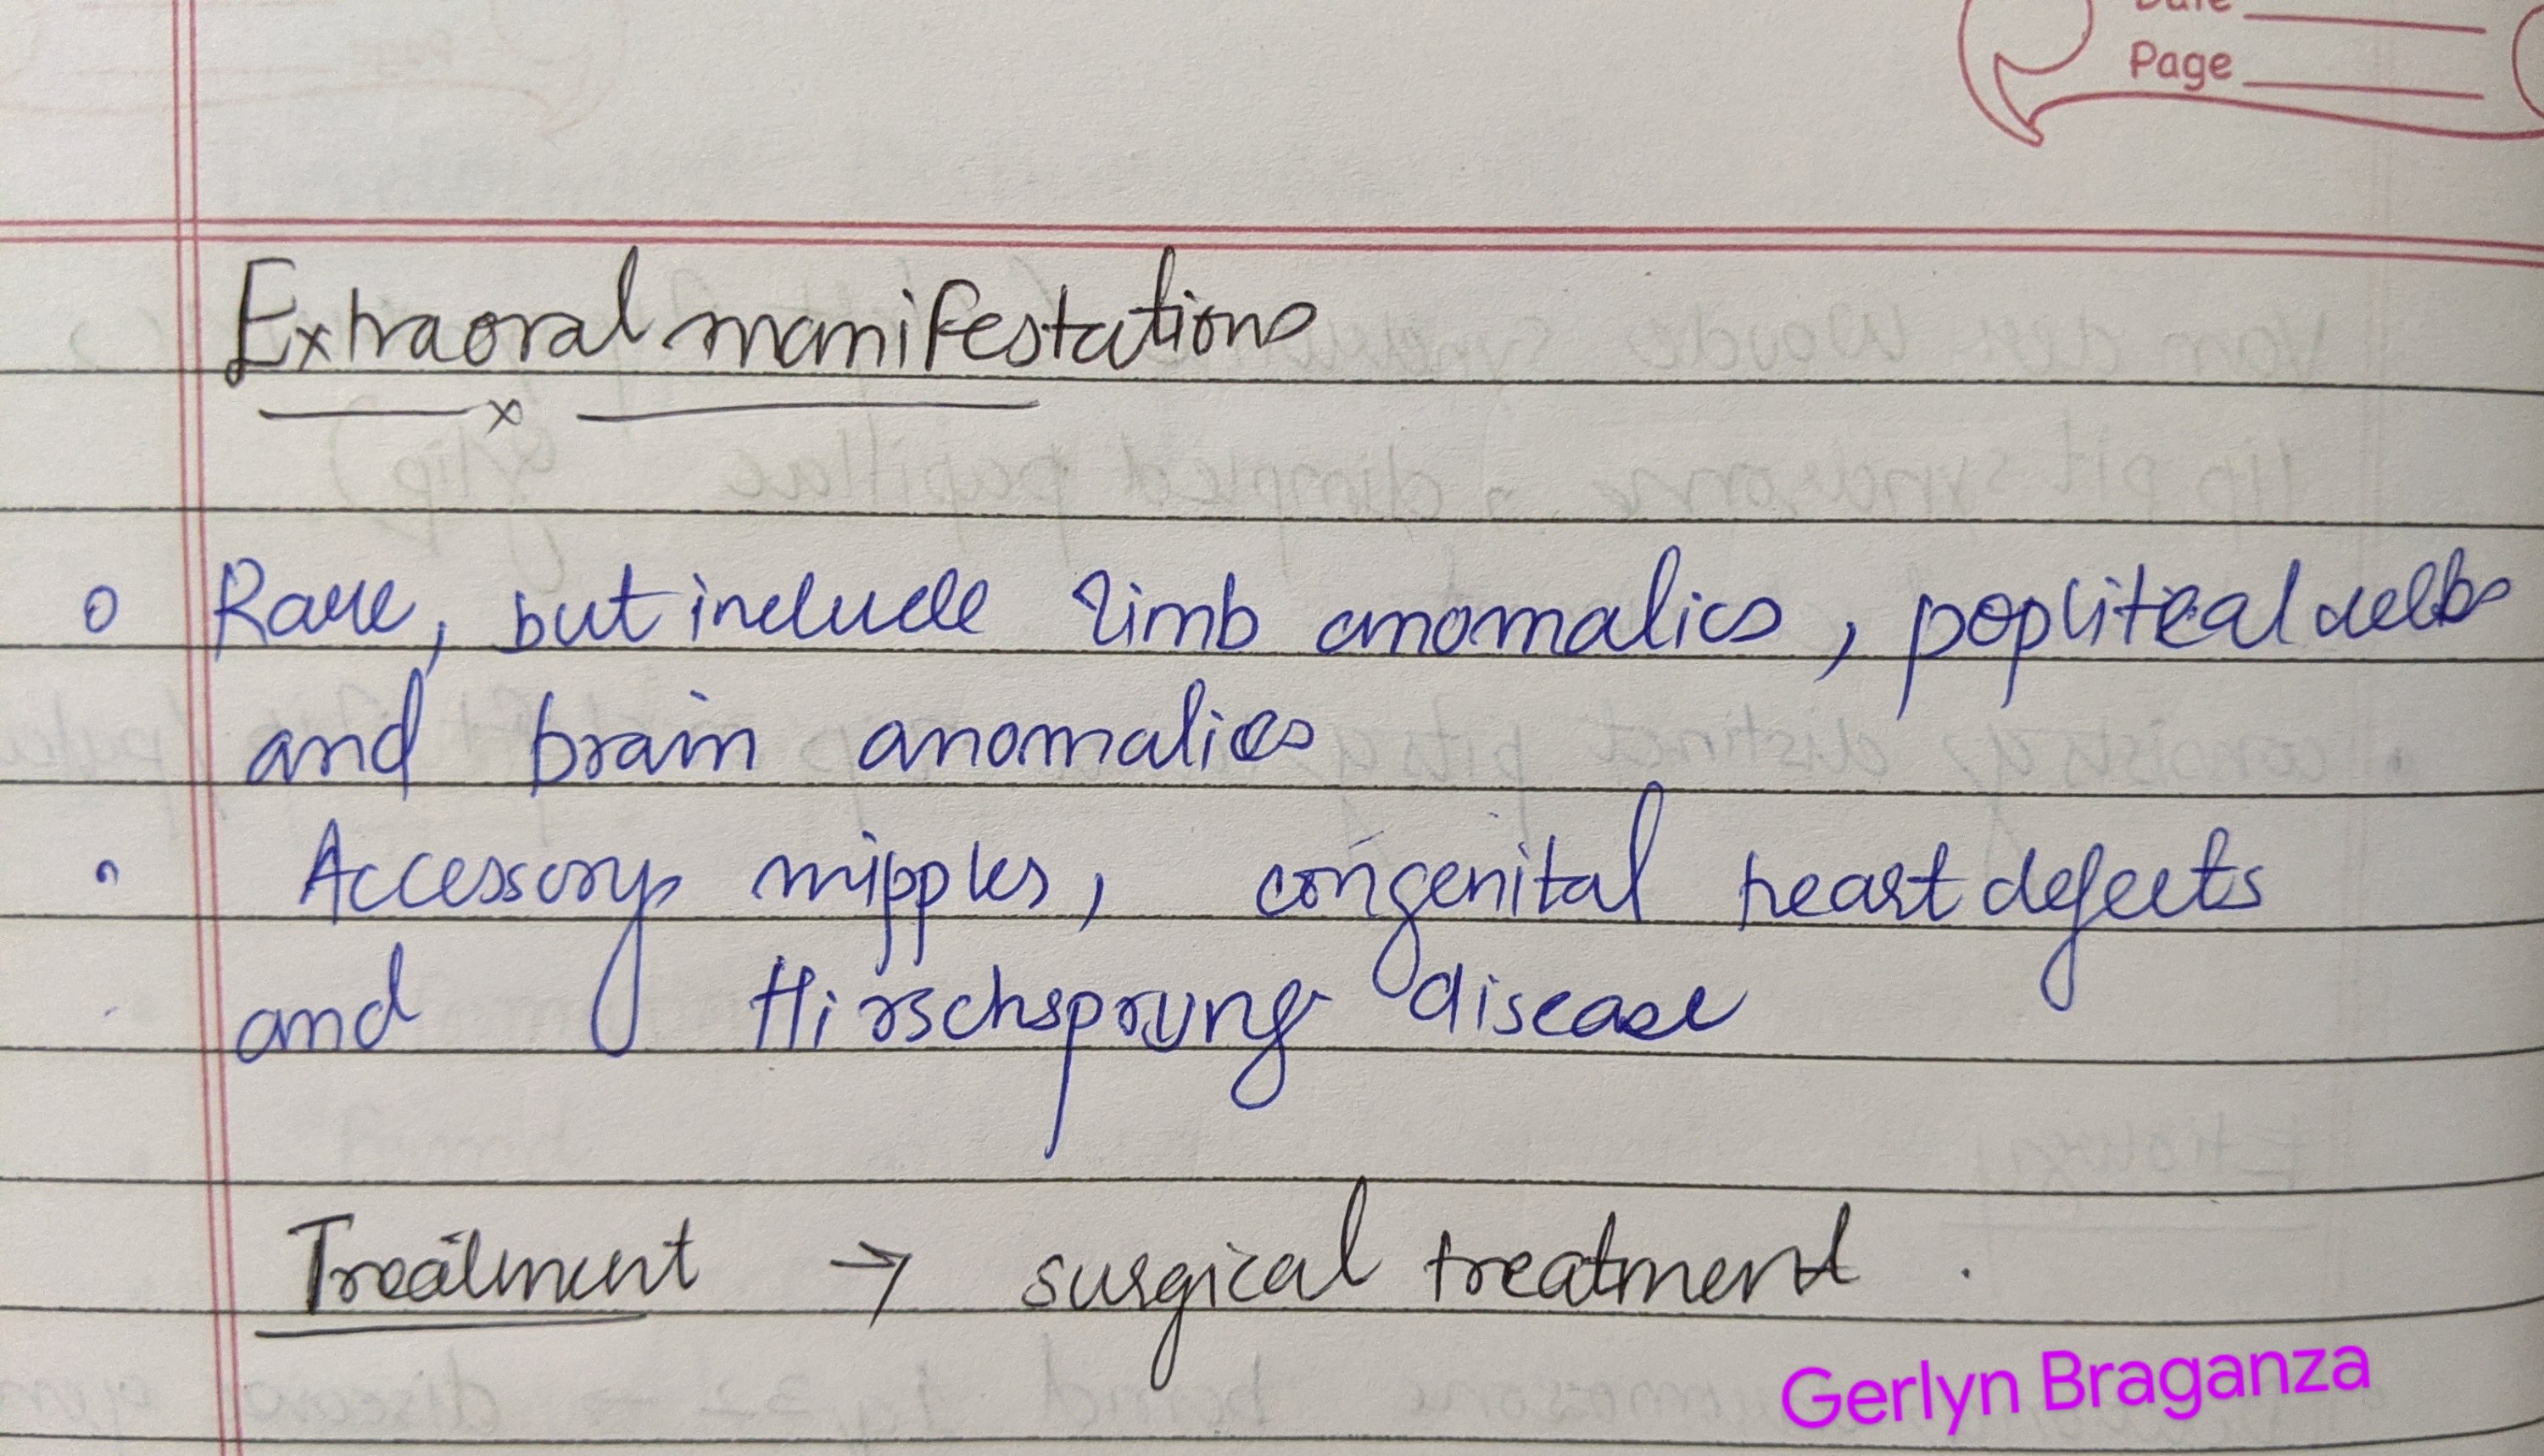 Date
Page
Extraoral manifestations
Rare, but include limb anomalies, popliteal
and brain anomalies
Accessory nipples, congenital heart defects
and Hirschsprung disease
Treatment → surgical treatment.
Gerlyn Braganza